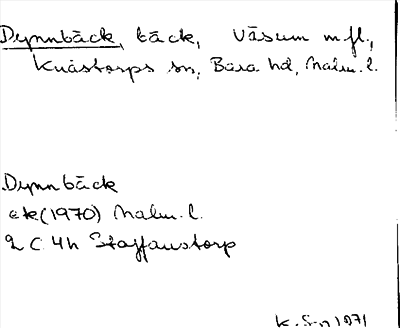 Dynnbäck, bäck, Väsum m.fl.,
Knästorps sn, Bara hd, Malm. l.
Dynnbäck
ek (1970) Malm. l.
2 C 4h Staffanstorp
K. S-n 1971